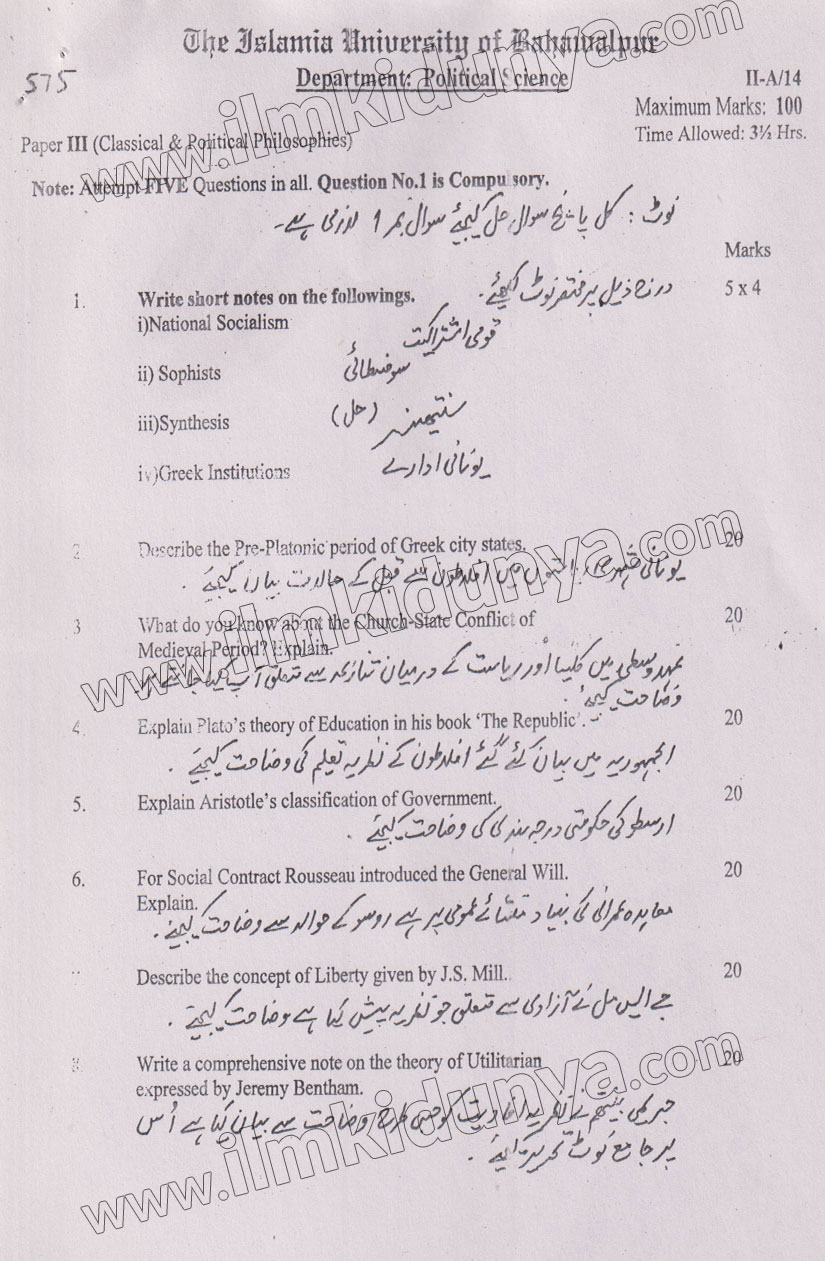 The Islamia University of Bahawalpur
575
Department: Political Science
II-A/14
Maximum Marks: 100
Paper III (Classical & Political Philosophies)
Time Allowed: 3½ Hrs.
Note: Attempt FIVE Questions in all. Question No.1 is Compulsory.
نوٹ : کل پانچ سوال حل کیجئے سوال نمبر 1 لازمی ہے۔
Marks
1. Write short notes on the followings. درج ذیل پر مختصر نوٹ لکھئے۔ 5 x 4
i)National Socialism قومی اشتراکیت
ii) Sophists سوفسطائی
iii)Synthesis سنتھیسز (حل)
iv)Greek Institutions یونانی ادارے
2 Describe the Pre-Platonic period of Greek city states. 20
یونانی شہری ریاستوں میں افلاطون سے قبل کے حالات بیان کیجئے۔
3 What do you know about the Church-State Conflict of 20
Medieval Period? Explain.
عہد وسطیٰ میں کلیسا اور ریاست کے درمیان تنازعہ سے متعلق آپ کیا جانتے ہیں
وضاحت کیجئے۔
4. Explain Plato's theory of Education in his book 'The Republic'. 20
الجمہوریہ میں بیان کئے گئے افلاطون کے نظریہ تعلیم کی وضاحت کیجئے۔
5. Explain Aristotle's classification of Government. 20
ارسطو کی حکومتی درجہ بندی کی وضاحت کیجئے۔
6. For Social Contract Rousseau introduced the General Will. 20
Explain.
معاہدہ عمرانی کی بنیاد منشائے عمومی پر ہے روسو کے حوالہ سے وضاحت کیجئے۔
Describe the concept of Liberty given by J.S. Mill. 20
جے ایس مل نے آزادی سے متعلق جو نظریہ پیش کیا ہے وضاحت کیجئے۔
8. Write a comprehensive note on the theory of Utilitarian 20
expressed by Jeremy Bentham.
جیریمی بینتھم نے نظریہ افادیت کو جس طرح وضاحت سے بیان کیا ہے اُس
پر جامع نوٹ تحریر کیجئے۔
www.ilmkidunya.com
www.ilmkidunya.com
www.ilmkidunya.com